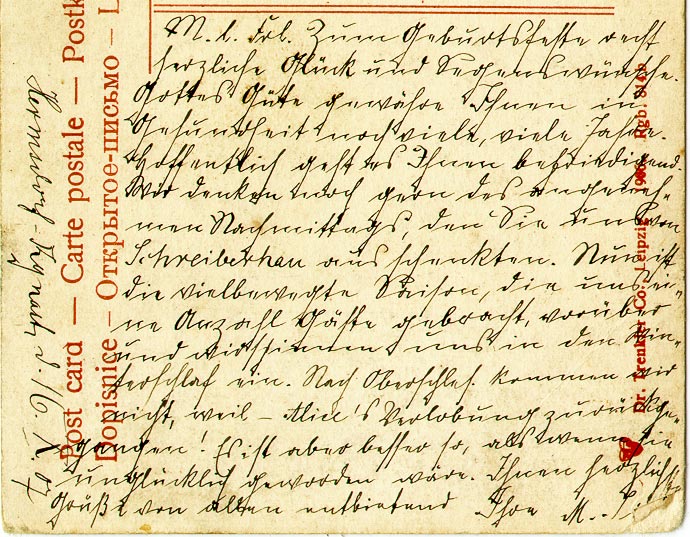 M. l. Frl. Zum Geburtsfeste recht
herzliche Glück und Segenswünsche.
Gottes Güte gewähre Ihnen in
Gesundheit noch viele, viele Jahre.
Hoffentlich geht es Ihnen befriedigend.
Wir denken noch gern des angeneh-
men Nachmittags, den Sie uns von
Schreiberhau aus schenkten. Nun ist
die vielbewegte Saison, die uns ei-
ne Anzahl Gäste gebracht, vorüber
und wir spinnen uns in den Win-
terschlaf ein. Nach Oberschles. kommen wir
nicht, weil – Alice's Verlobung zurückge-
gangen! Es ist aber besser so, als wenn sie
unglücklich geworden wäre. Ihnen herzlichst
Grüße von allen entbietend Ihre M.
Hermsdorf d. 16. X 07
Post card — Carte postale — Postk
Dopisnice – Открытое-письмо – L
Dr. Trenkler Co., Leipzig 1906 Rgb. 31